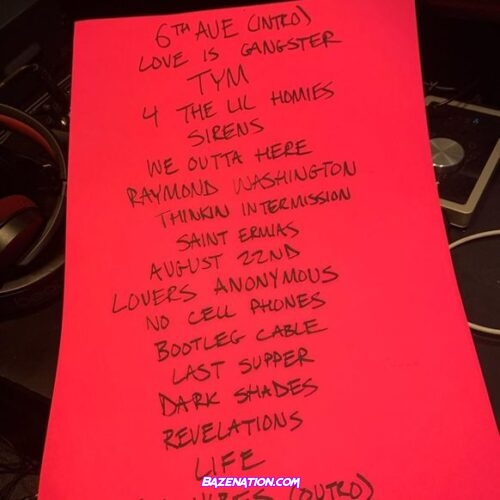 6TH AVE (INTRO)
LOVE IS GANGSTER
TYM
4 THE LIL HOMIES
SIRENS
WE OUTTA HERE
RAYMOND WASHINGTON
THINKIN INTERMISSION
SAINT ERMIAS
AUGUST 22ND
LOVERS ANONYMOUS
NO CELL PHONES
BOOTLEG CABLE
LAST SUPPER
DARK SHADES
REVELATIONS
LIFE
VIBES (OUTRO)
BAZENATION.COM